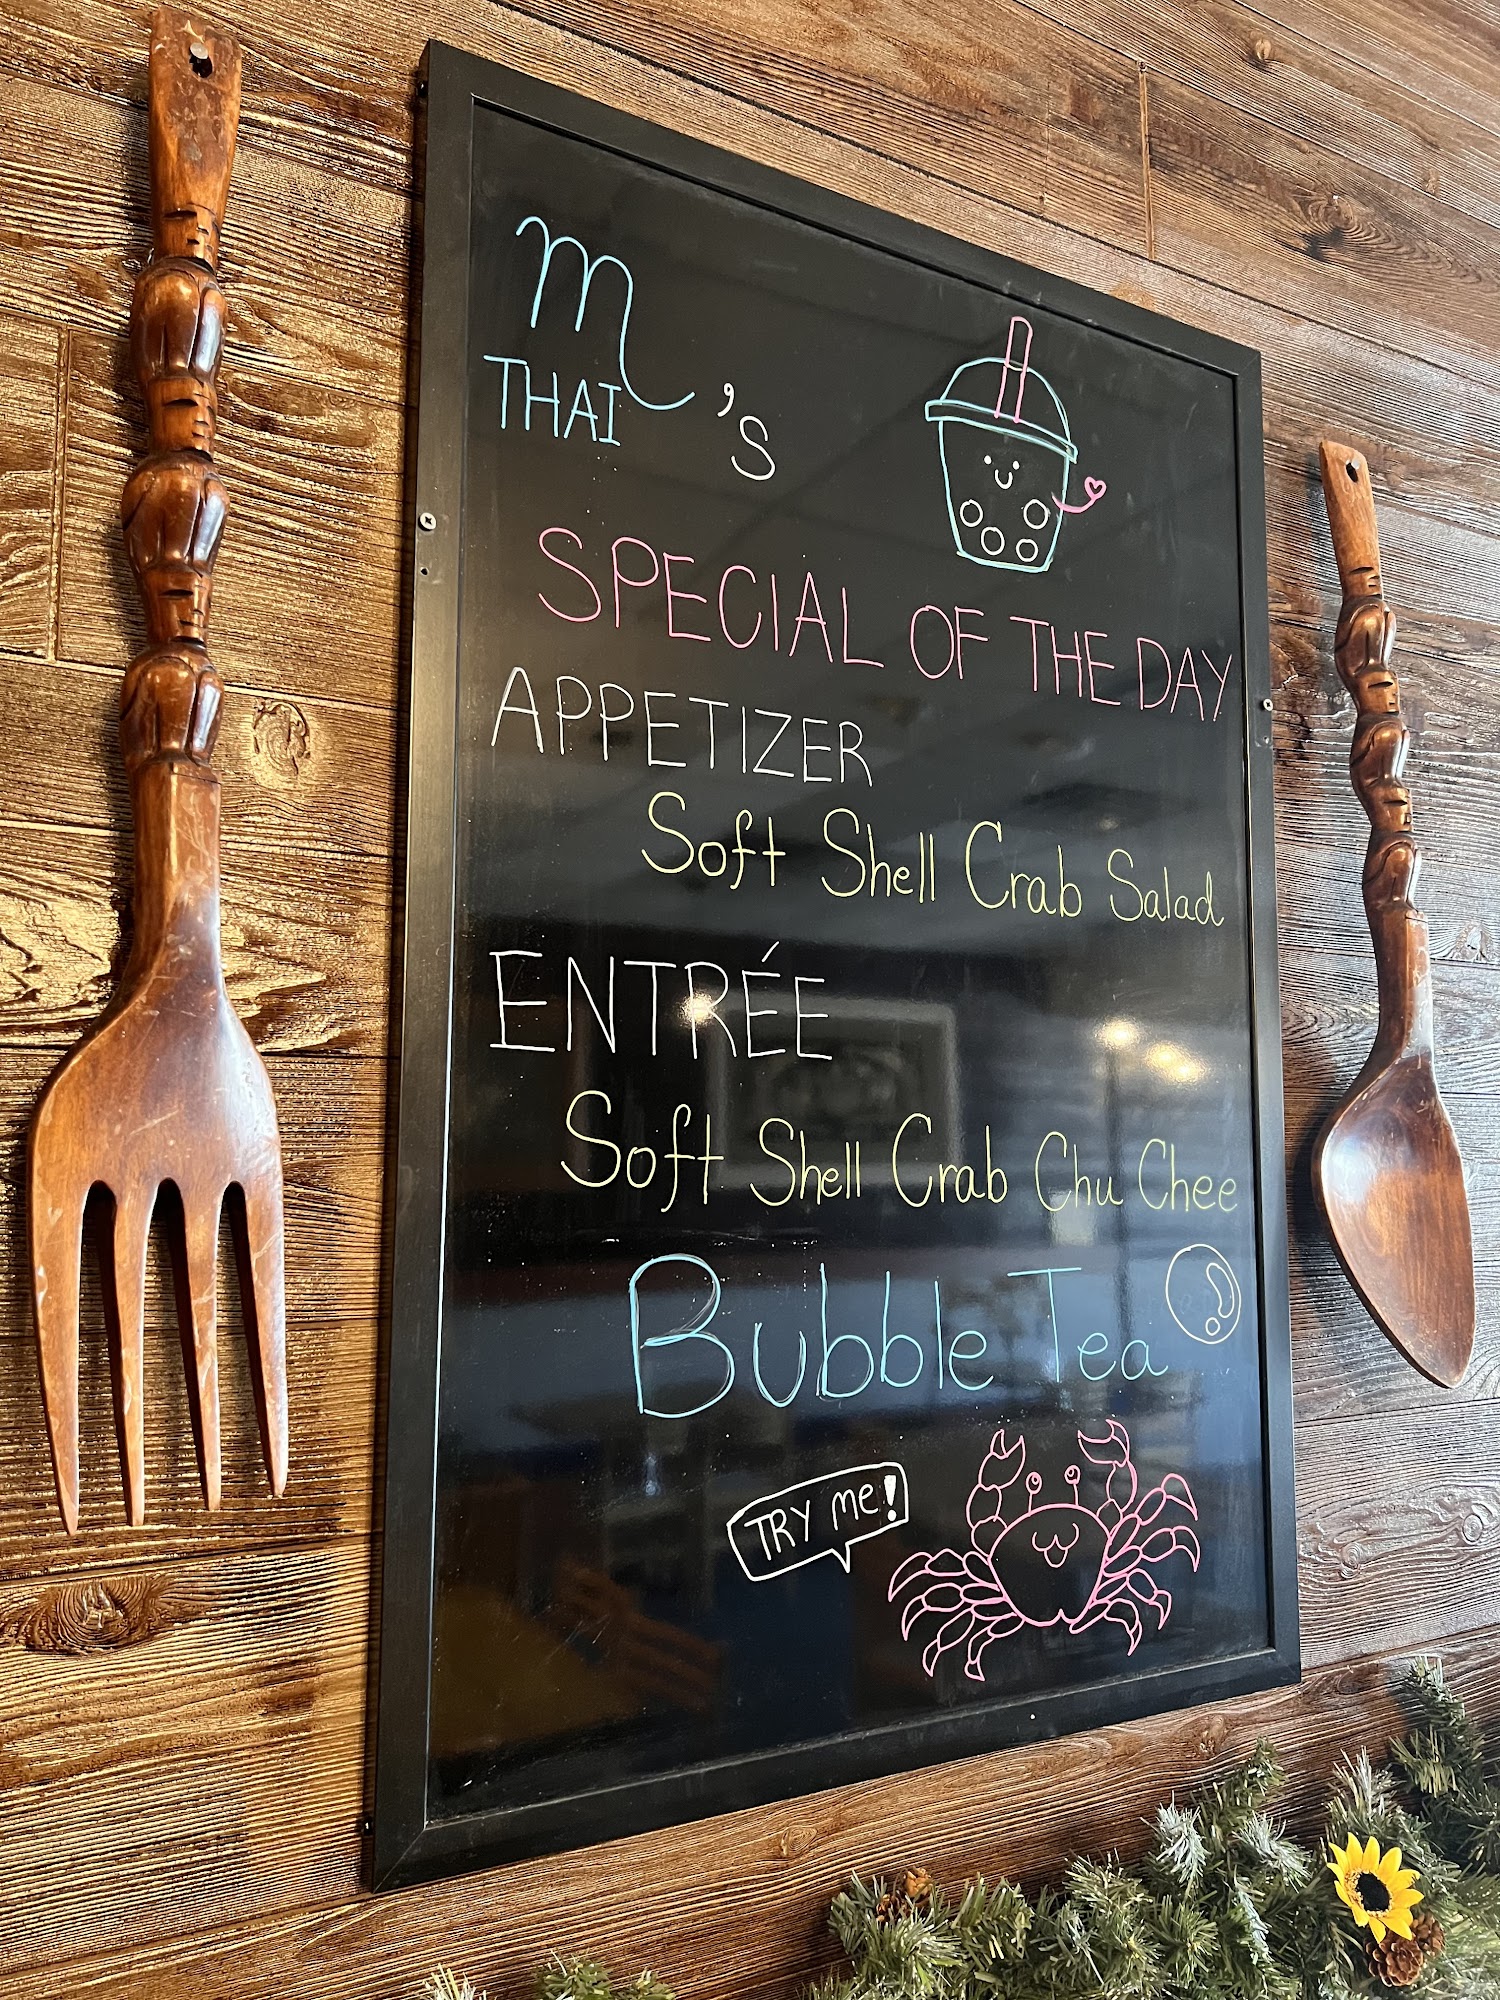 m's
THAI
SPECIAL OF THE DAY
APPETIZER
Soft Shell Crab Salad
ENTRÉE
Soft Shell Crab Chu Chee
Bubble Tea
TRY me!